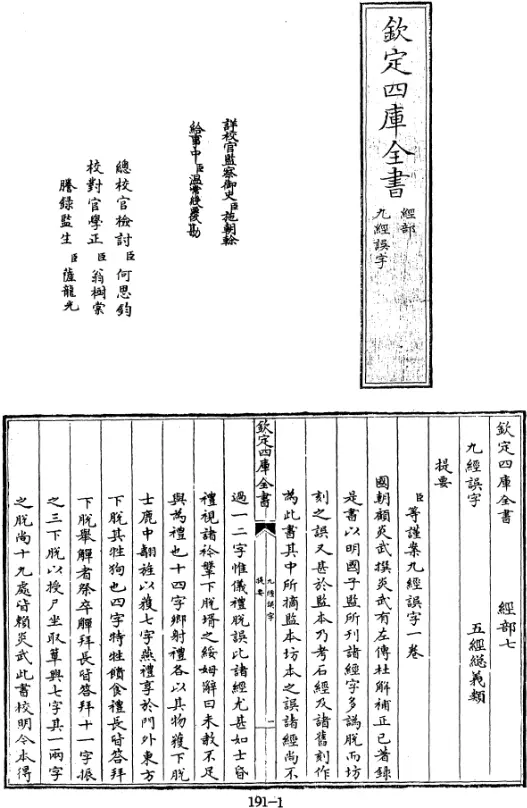 欽定四庫全書
經部
九經誤字
詳校官監察御史臣施朝幹
給事中臣溫常綬覆勘
總校官檢討臣何思鈞
校對官學正臣翁樹棠
謄錄監生臣薩龍光
欽定四庫全書 經部七
九經誤字 五經總義類
提要
臣等謹案九經誤字一卷
國朝顧炎武撰炎武有左傳杜解補正已著録
是書以明國子監所刊諸經字多譌脱而坊
刻之誤又甚於監本乃考石經及諸舊刻作
為此書其中所摘監本坊本之誤諸經尚不
欽定四庫全書
九經誤字
提要
一
過一二字惟儀禮脱誤比諸經尤甚如士昏
禮視諸衿鞶下脱壻之綏姆辭曰未教不足
與為禮也十四字鄉射禮各以其物獲下脱
士鹿中翿旌以獲七字燕禮享於門外東方
下脱其牲狗也四字特牲饋食禮長皆答拜
下脱舉觶者祭卒觶拜長皆答拜十一字振
之三下脱以授尸坐取簞興七字其一兩字
之脱尚十九處皆賴炎武此書校明今本得
191-1